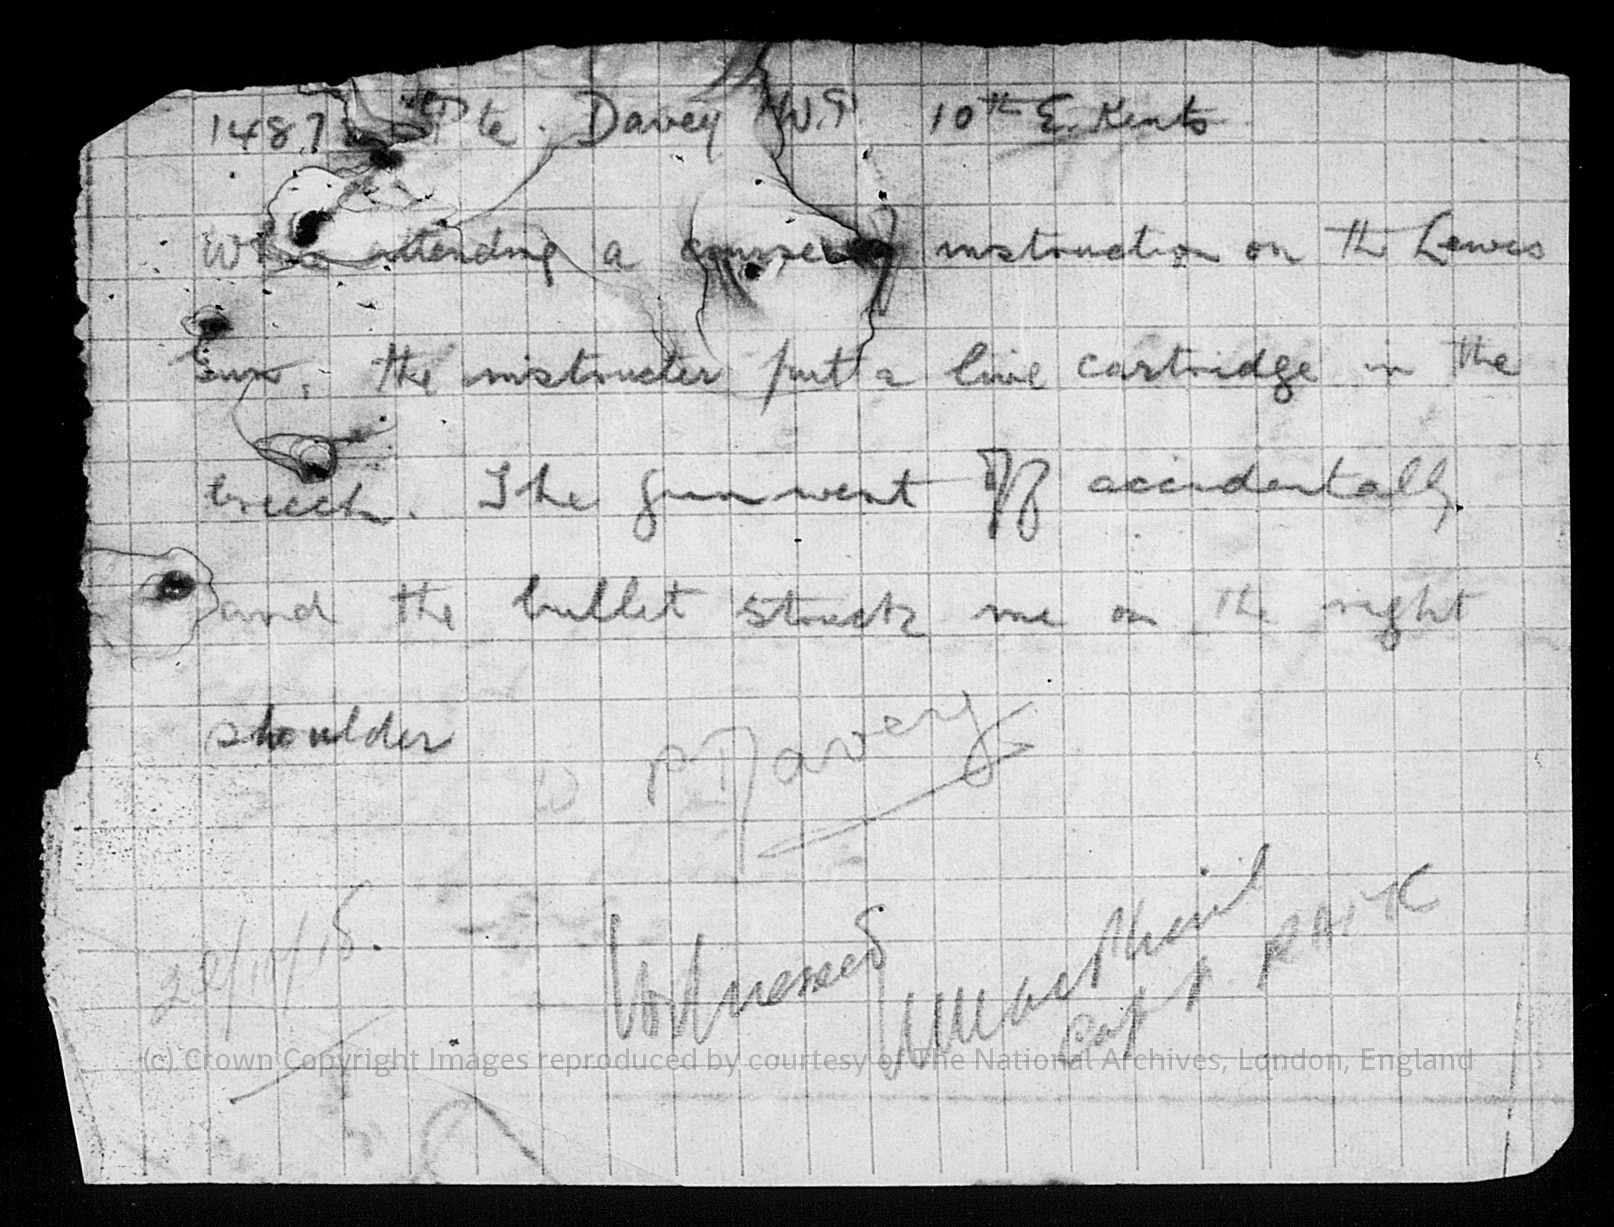 1487 Pte. Davey W.P. 10th E. Kents
While attending a course of instruction on the Lewis
Gun, the instructer put a live cartridge in the
breech. The gun went off accidentally
and the bullet struck me on the right
shoulder
W P Davey
Witnessed
Capt RAMC
(c) Crown Copyright Images reproduced by courtesy of The National Archives, London, England